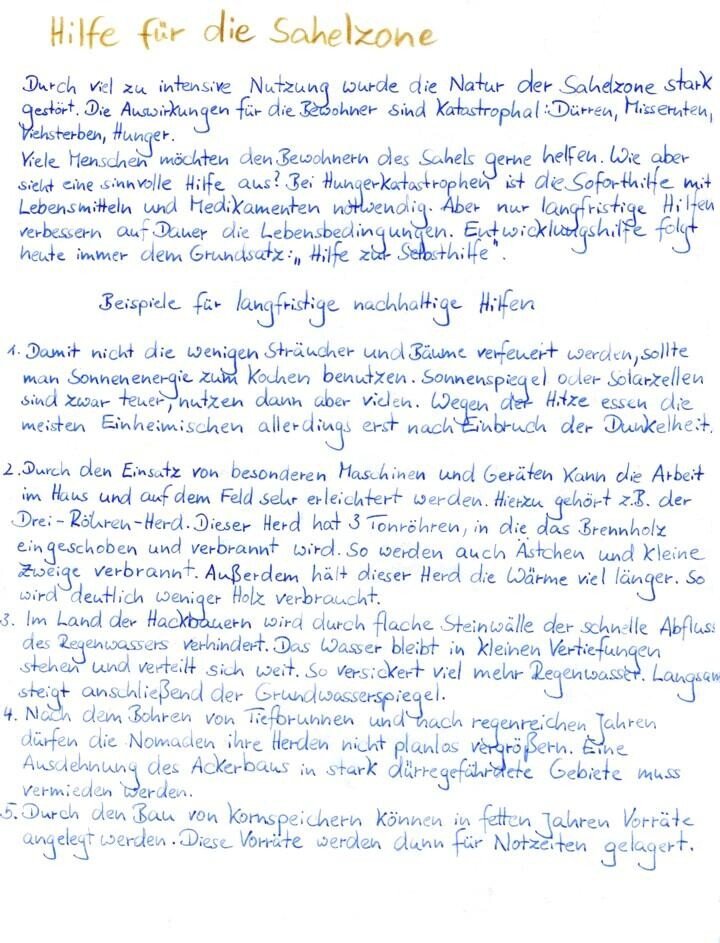 Hilfe für die Sahelzone
Durch viel zu intensive Nutzung wurde die Natur der Sahelzone stark
gestört. Die Auswirkungen für die Bewohner sind Katastrophal: Dürren, Missernten,
Viehsterben, Hunger.
Viele Menschen möchten den Bewohnern des Sahels gerne helfen. Wie aber
sieht eine sinnvolle Hilfe aus? Bei Hungerkatastrophen ist die Soforthilfe mit
Lebensmitteln und Medikamenten notwendig. Aber nur langfristige Hilfen
verbessern auf Dauer die Lebensbedingungen. Entwicklungshilfe folgt
heute immer dem Grundsatz: „Hilfe zur Selbsthilfe".
Beispiele für langfristige nachhaltige Hilfen
1. Damit nicht die wenigen Sträucher und Bäume verfeuert werden, sollte
man Sonnenenergie zum Kochen benutzen. Sonnenspiegel oder Solarzellen
sind zwar teuer, nutzen dann aber vielen. Wegen der Hitze essen die
meisten Einheimischen allerdings erst nach Einbruch der Dunkelheit.
2. Durch den Einsatz von besonderen Maschinen und Geräten kann die Arbeit
im Haus und auf dem Feld sehr erleichtert werden. Hierzu gehört z.B. der
Drei-Röhren-Herd. Dieser Herd hat 3 Tonröhren, in die das Brennholz
eingeschoben und verbrannt wird. So werden auch Ästchen und kleine
Zweige verbrannt. Außerdem hält dieser Herd die Wärme viel länger. So
wird deutlich weniger Holz verbraucht.
3. Im Land der Hackbauern wird durch flache Steinwälle der schnelle Abfluss
des Regenwassers verhindert. Das Wasser bleibt in kleinen Vertiefungen
stehen und verteilt sich weit. So versickert viel mehr Regenwasser. Langsam
steigt anschließend der Grundwasserspiegel.
4. Nach dem Bohren von Tiefbrunnen und nach regenreichen Jahren
dürfen die Nomaden ihre Herden nicht planlos vergrößern. Eine
Ausdehnung des Ackerbaus in stark dürregefährdete Gebiete muss
vermieden werden.
5. Durch den Bau von Kornspeichern können in fetten Jahren Vorräte
angelegt werden. Diese Vorräte werden dann für Notzeiten gelagert.